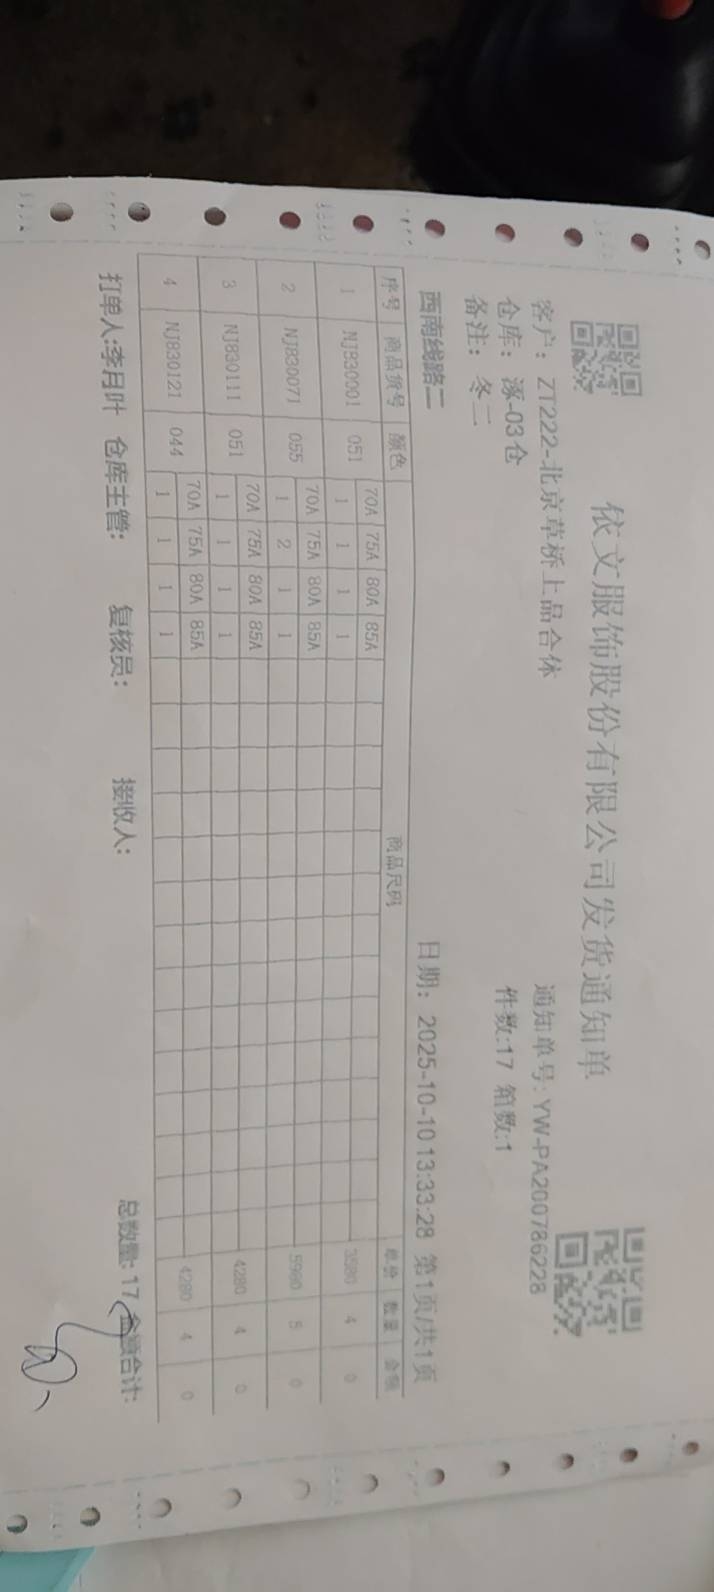 依文服饰股份有限公司发货通知单
客户: ZT222-北京草桥上品合体 通知单号: YW-PA200786228
仓库: 涿-03仓 件数:17 箱数:1
备注: 冬二
西南线路二 日期: 2025-10-10 13:33:28 第1页/共1页
序号 商品货号 颜色 商品尺码 单价 数量 金额
70A 75A 80A 85A
1 NJ830001 051 1 1 1 1 3580 4 0
70A 75A 80A 85A
2 NJ830071 055 1 2 1 1 5980 5 0
70A 75A 80A 85A
3 NJ830111 051 1 1 1 1 4280 4 0
70A 75A 80A 85A
4 NJ830121 044 1 1 1 1 4280 4 0
打单人:李月叶 仓库主管: 复核员: 接收人: 总数量: 17 金额合计: